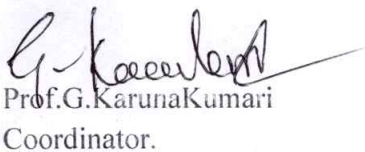 Prof.G.KarunaKumari
Coordinator.